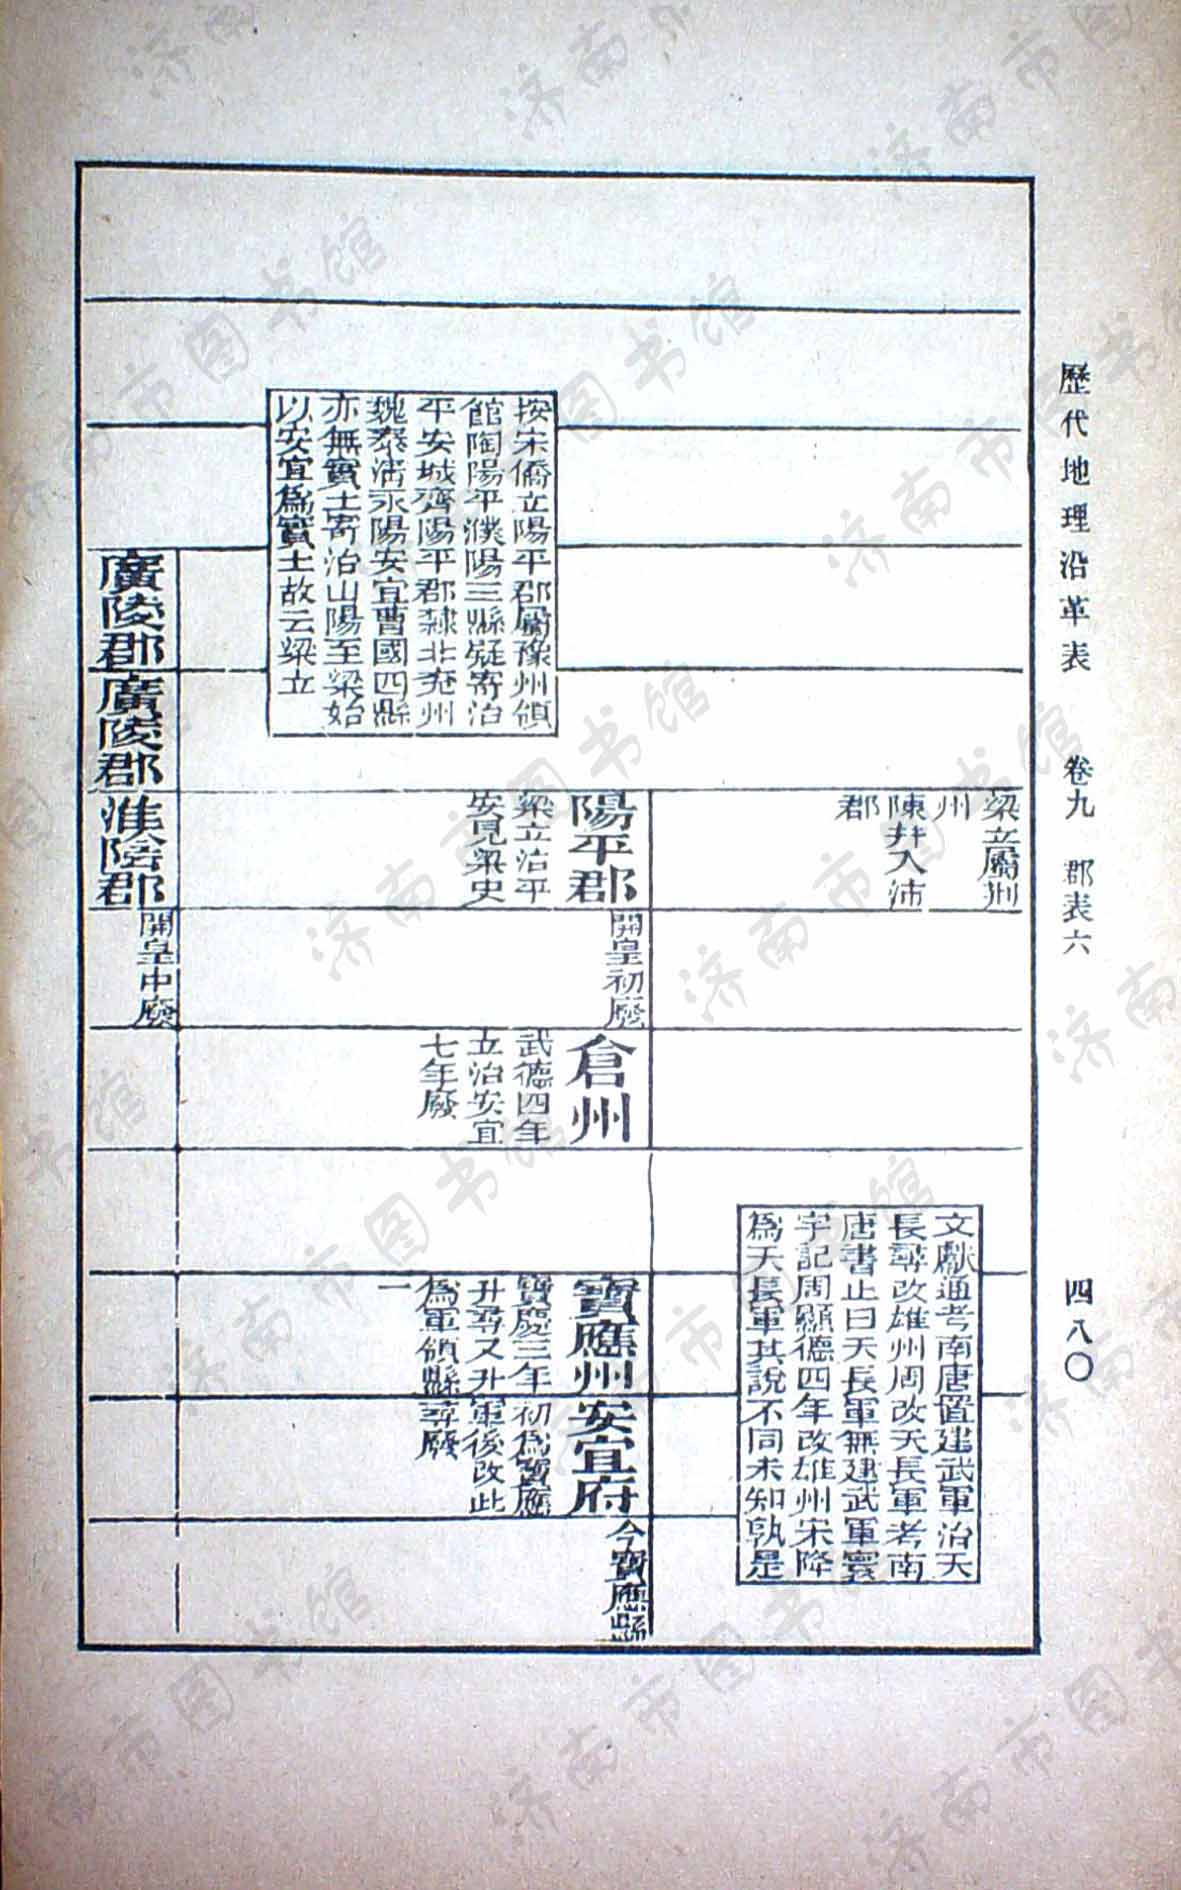 歷代地理沿革表
卷九
郡表六
四八〇
梁立屬荆
州
陳并入沛
郡
文獻通考南唐置建武軍治天
長尋改雄州周改天長軍考南
唐書止曰天長軍無建武軍寰
宇記周顯德四年改雄州宋降
爲天長軍其說不同未知孰是
陽平郡
梁立治平
安見梁史
開皇初廢
倉州
武德四年
立治安宜
七年廢
寶應州
寶慶三年
升尋又升
爲軍領縣
一
安宜府
初爲寶應
軍後改此
尋廢
今寶應縣
按宋僑立陽平郡屬豫州領
館陶陽平濮陽三縣疑寄治
平安城齊陽平郡隸北兗州
魏泰清永陽安宜曹國四縣
亦無實土寄治山陽至梁始
以安宜爲實土故云梁立
廣陵郡
廣陵郡
淮陰郡
開皇中廢
济南市图书馆